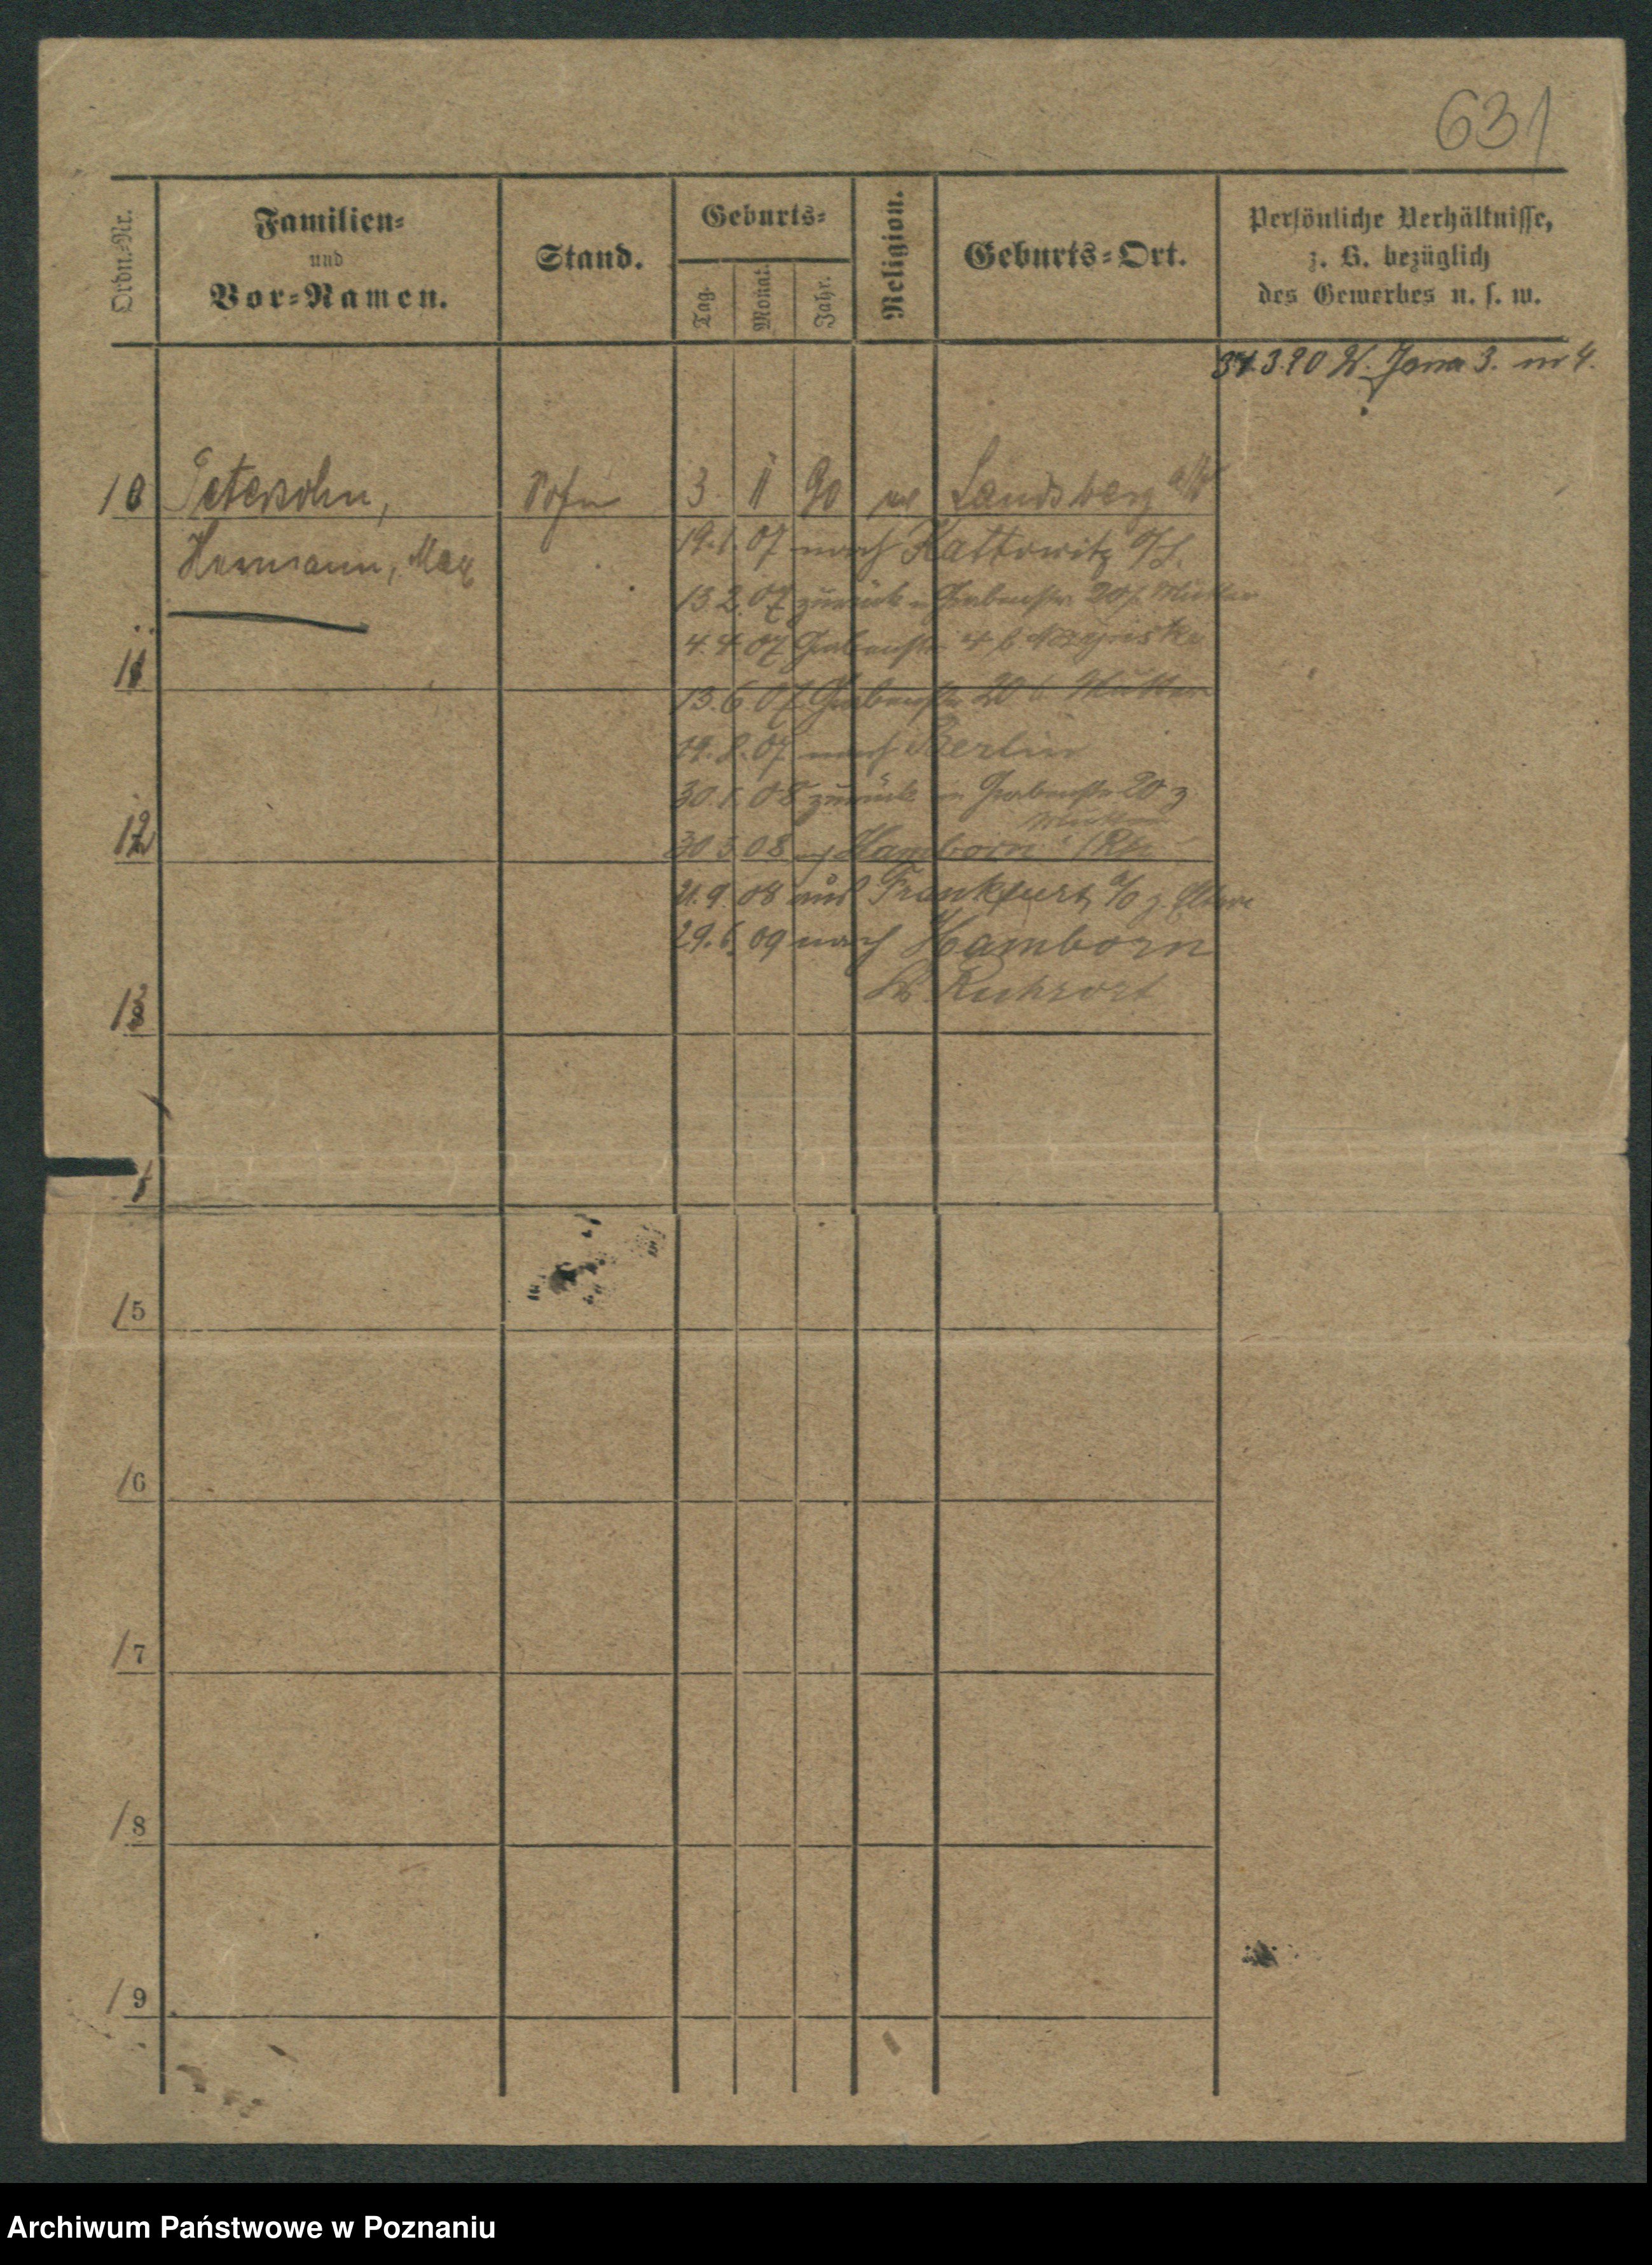 631
Ordn.=Nr.
Familien=
und
Vor=Namen.
Stand.
Geburts=
Tag.
Monat.
Jahr.
Religion.
Geburts=Ort.
Persönliche Verhältnisse,
z. B. bezüglich
des Gewerbes u. s. w.
3. nr 4.
10 Petersohn, Sohn 3. II 90 Landsberg a/W
Hermann, Max
19.1.07 nach Kattowitz O/S.
13.2.07 zurück Grabenstr 20 Mutter
11
4.4.07 Grabenstr 4 b
13.6.07 Grabenstr 20 b Mutter
19.8.07 nach Berlin
30.1.08 zurück Grabenstr 20 z
Mutter
12
30.3.08 Hamborn /Rh
21.9.08 aus Frankfurt a/O z. Eltern
29.6.09 nach Hamborn
Kr. Ruhrort
13
/5
/6
/7
/8
/9
Archiwum Państwowe w Poznaniu